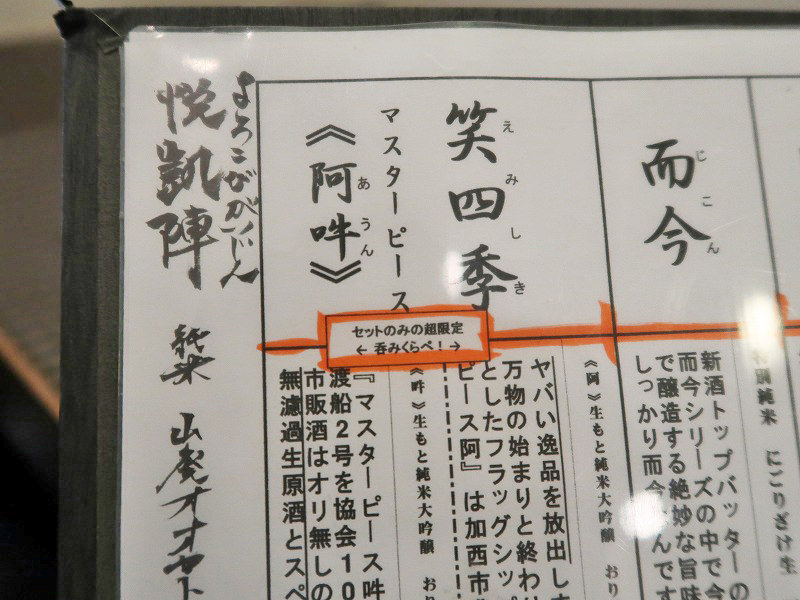 而今
じこん
特別純米 にごりざけ生
新酒トップバッターの
而今シリーズの中で今
で醸造する絶妙な旨味
しっかり而今
んです
笑四季
えみしき
マスターピース
《阿吽》
あうん
セットのみの超限定
← 呑みくらべ！→
《阿》生もと純米大吟醸 おり
ヤバい逸品を放出し
万物の始まりと終わ
としたフラッグシップ
ピース阿』は加西市
《吽》生もと純米大吟醸 おり
『マスターピース吽
渡船2号を協会10
市販酒はオリ無しの
無濾過生原酒とスペ
よろこびがいじん
悦凱陣
純米
山廃オオヤト